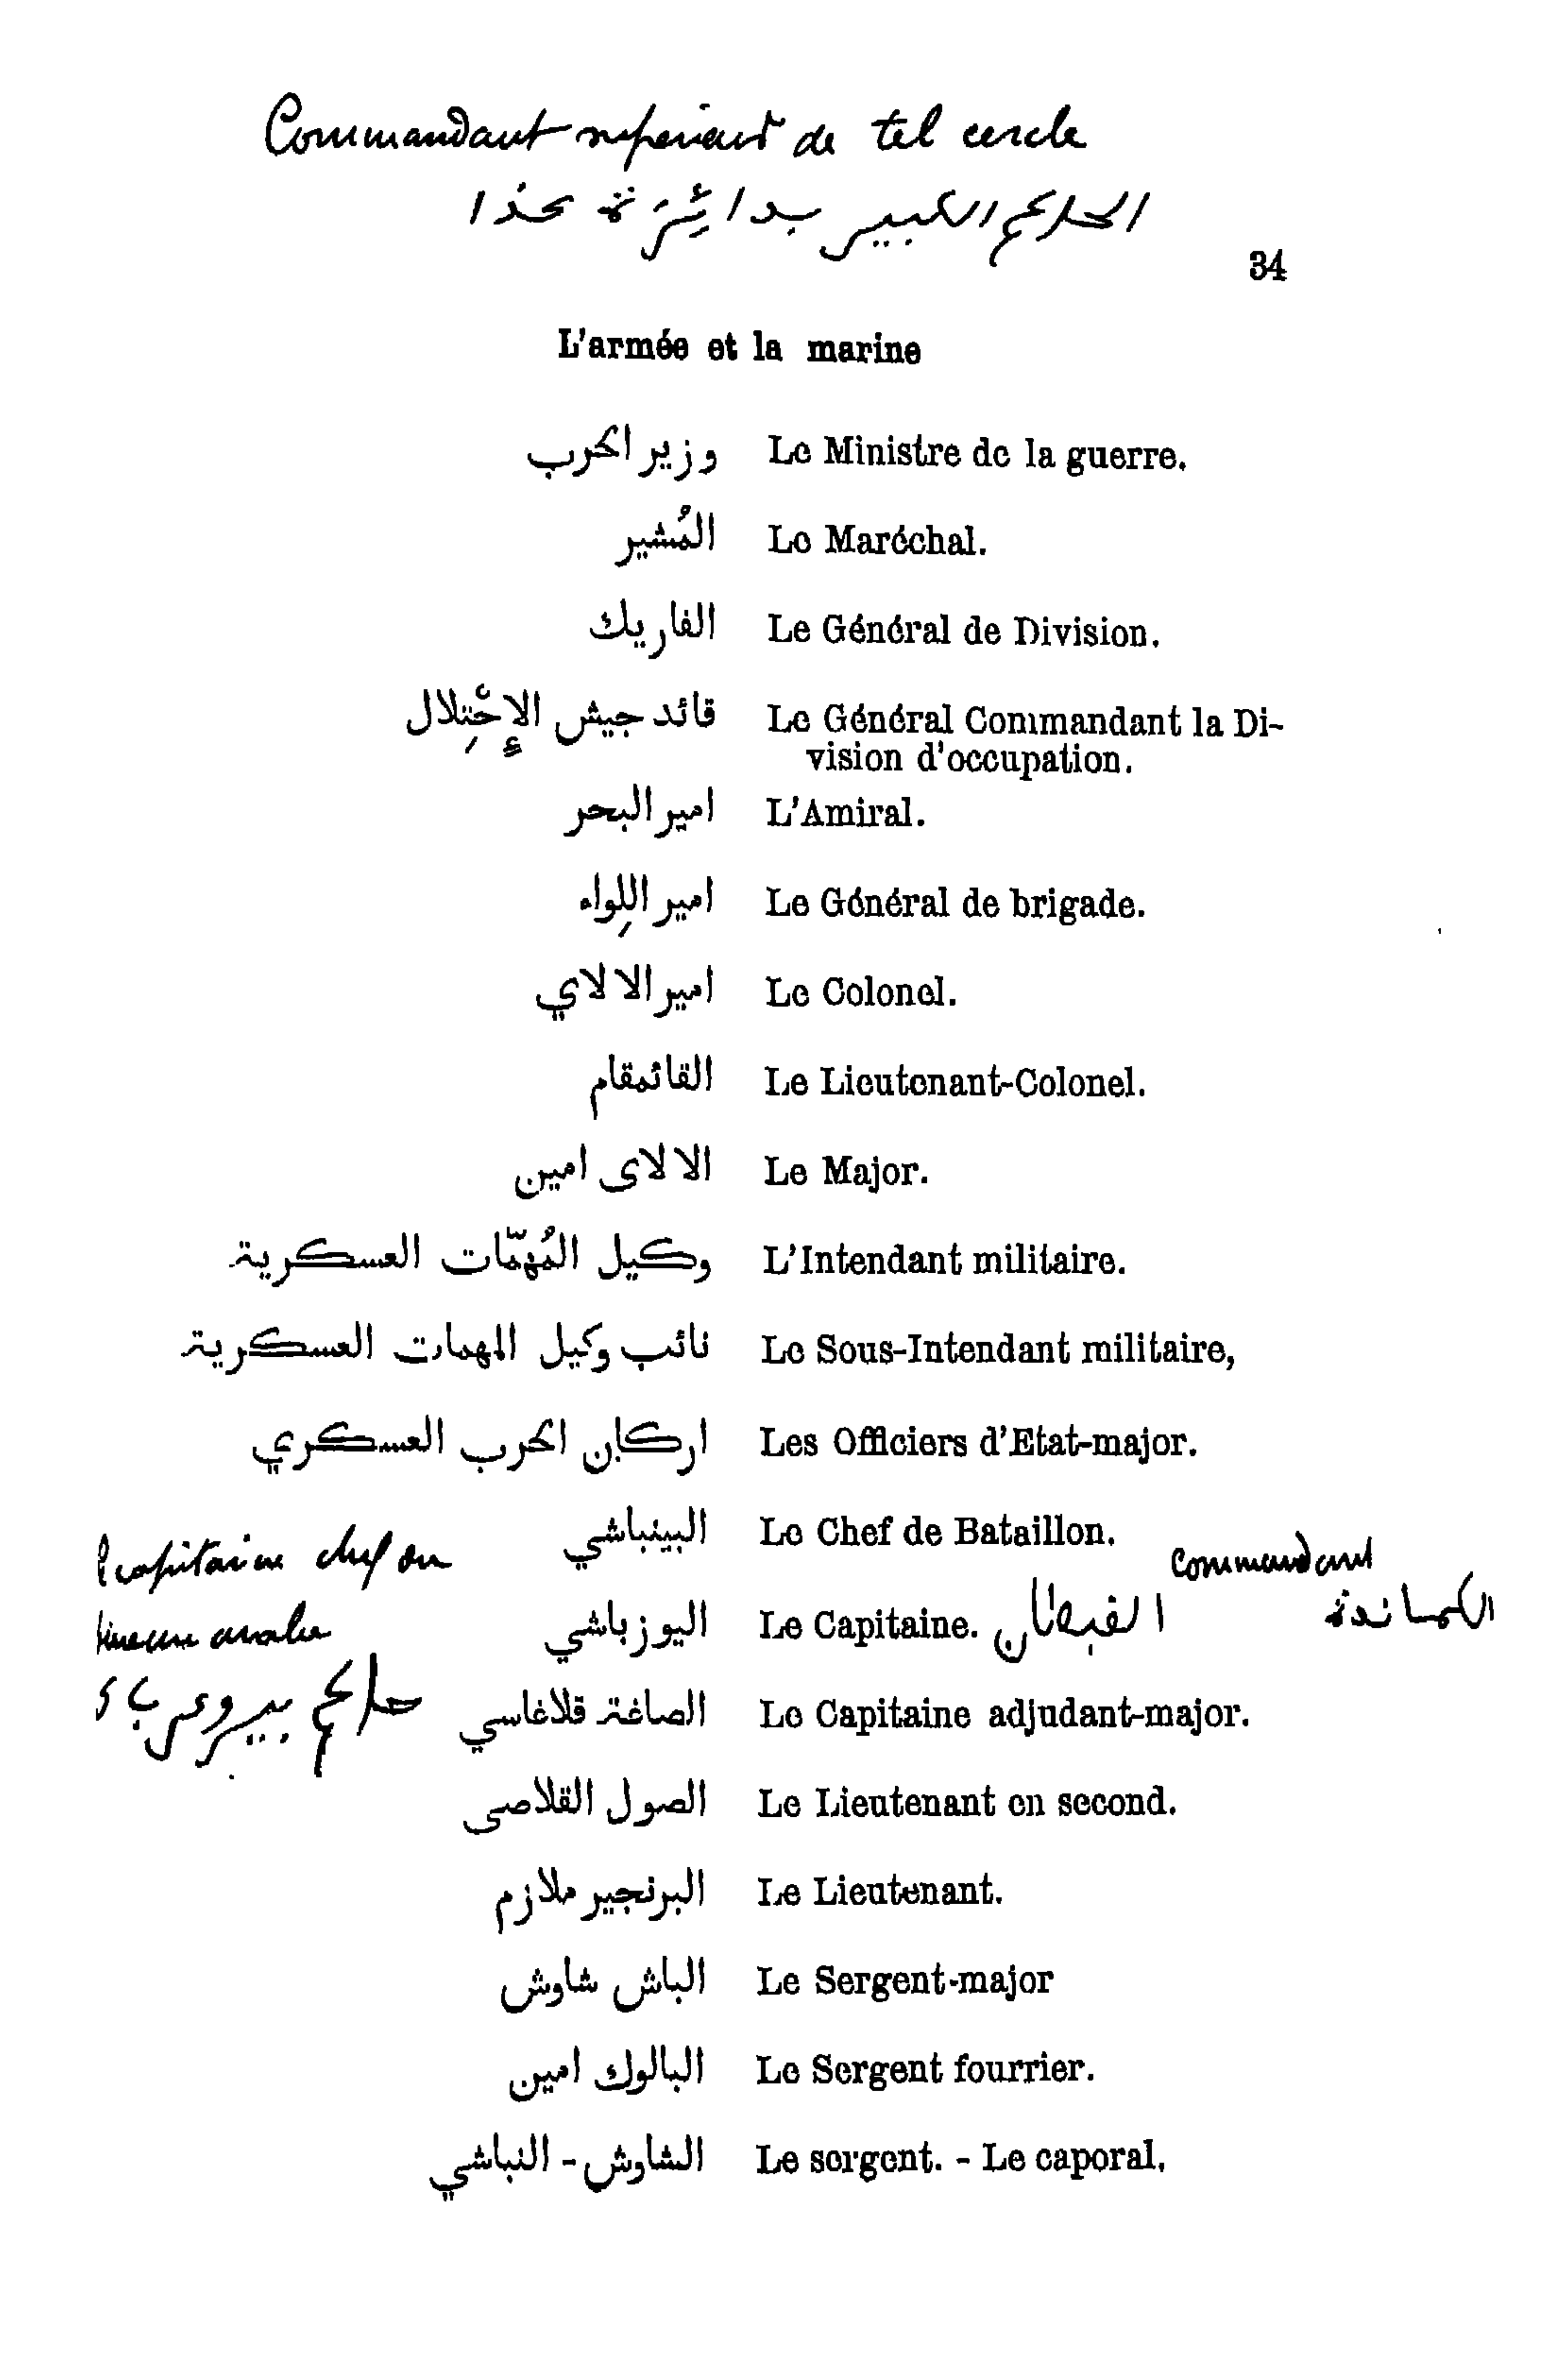 Commandant supérieur de tel cercle
الحاكم الكبير بدائرة كذا
34
L'armée et la marine
وزير الحرب Le Ministre de la guerre.
المُشير Le Maréchal.
الفاريك Le Général de Division.
قائد جيش الإحْتِلال Le Général Commandant la Di-
vision d'occupation.
امير البحر L'Amiral.
امير اللِواء Le Général de brigade.
امير الالاي Le Colonel.
القائمقام Le Lieutenant-Colonel.
الالاى امين Le Major.
وكيل المُهِمّات العسكرية L'Intendant militaire.
نائب وكيل المهمات العسكرية Le Sous-Intendant militaire,
اركان الحرب العسكري Les Officiers d'Etat-major.
البينباشي Le Chef de Bataillon.
commandant
الكماندة
اليوزباشي Le Capitaine. القبطان
capitaine chef
bureau arabe
حاكم بيرو
الصاغة قلاغاسي Le Capitaine adjudant-major.
الصول القلاصى Le Lieutenant en second.
البرنجير ملازم Le Lieutenant.
الباش شاوش Le Sergent-major
البالوك امين Le Sergent fourrier.
الشاوش - النباشي Le sergent. - Le caporal,